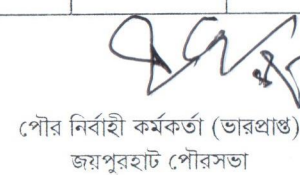 পৌর নির্বাহী কর্মকর্তা (ভারপ্রাপ্ত)
জয়পুরহাট পৌরসভা